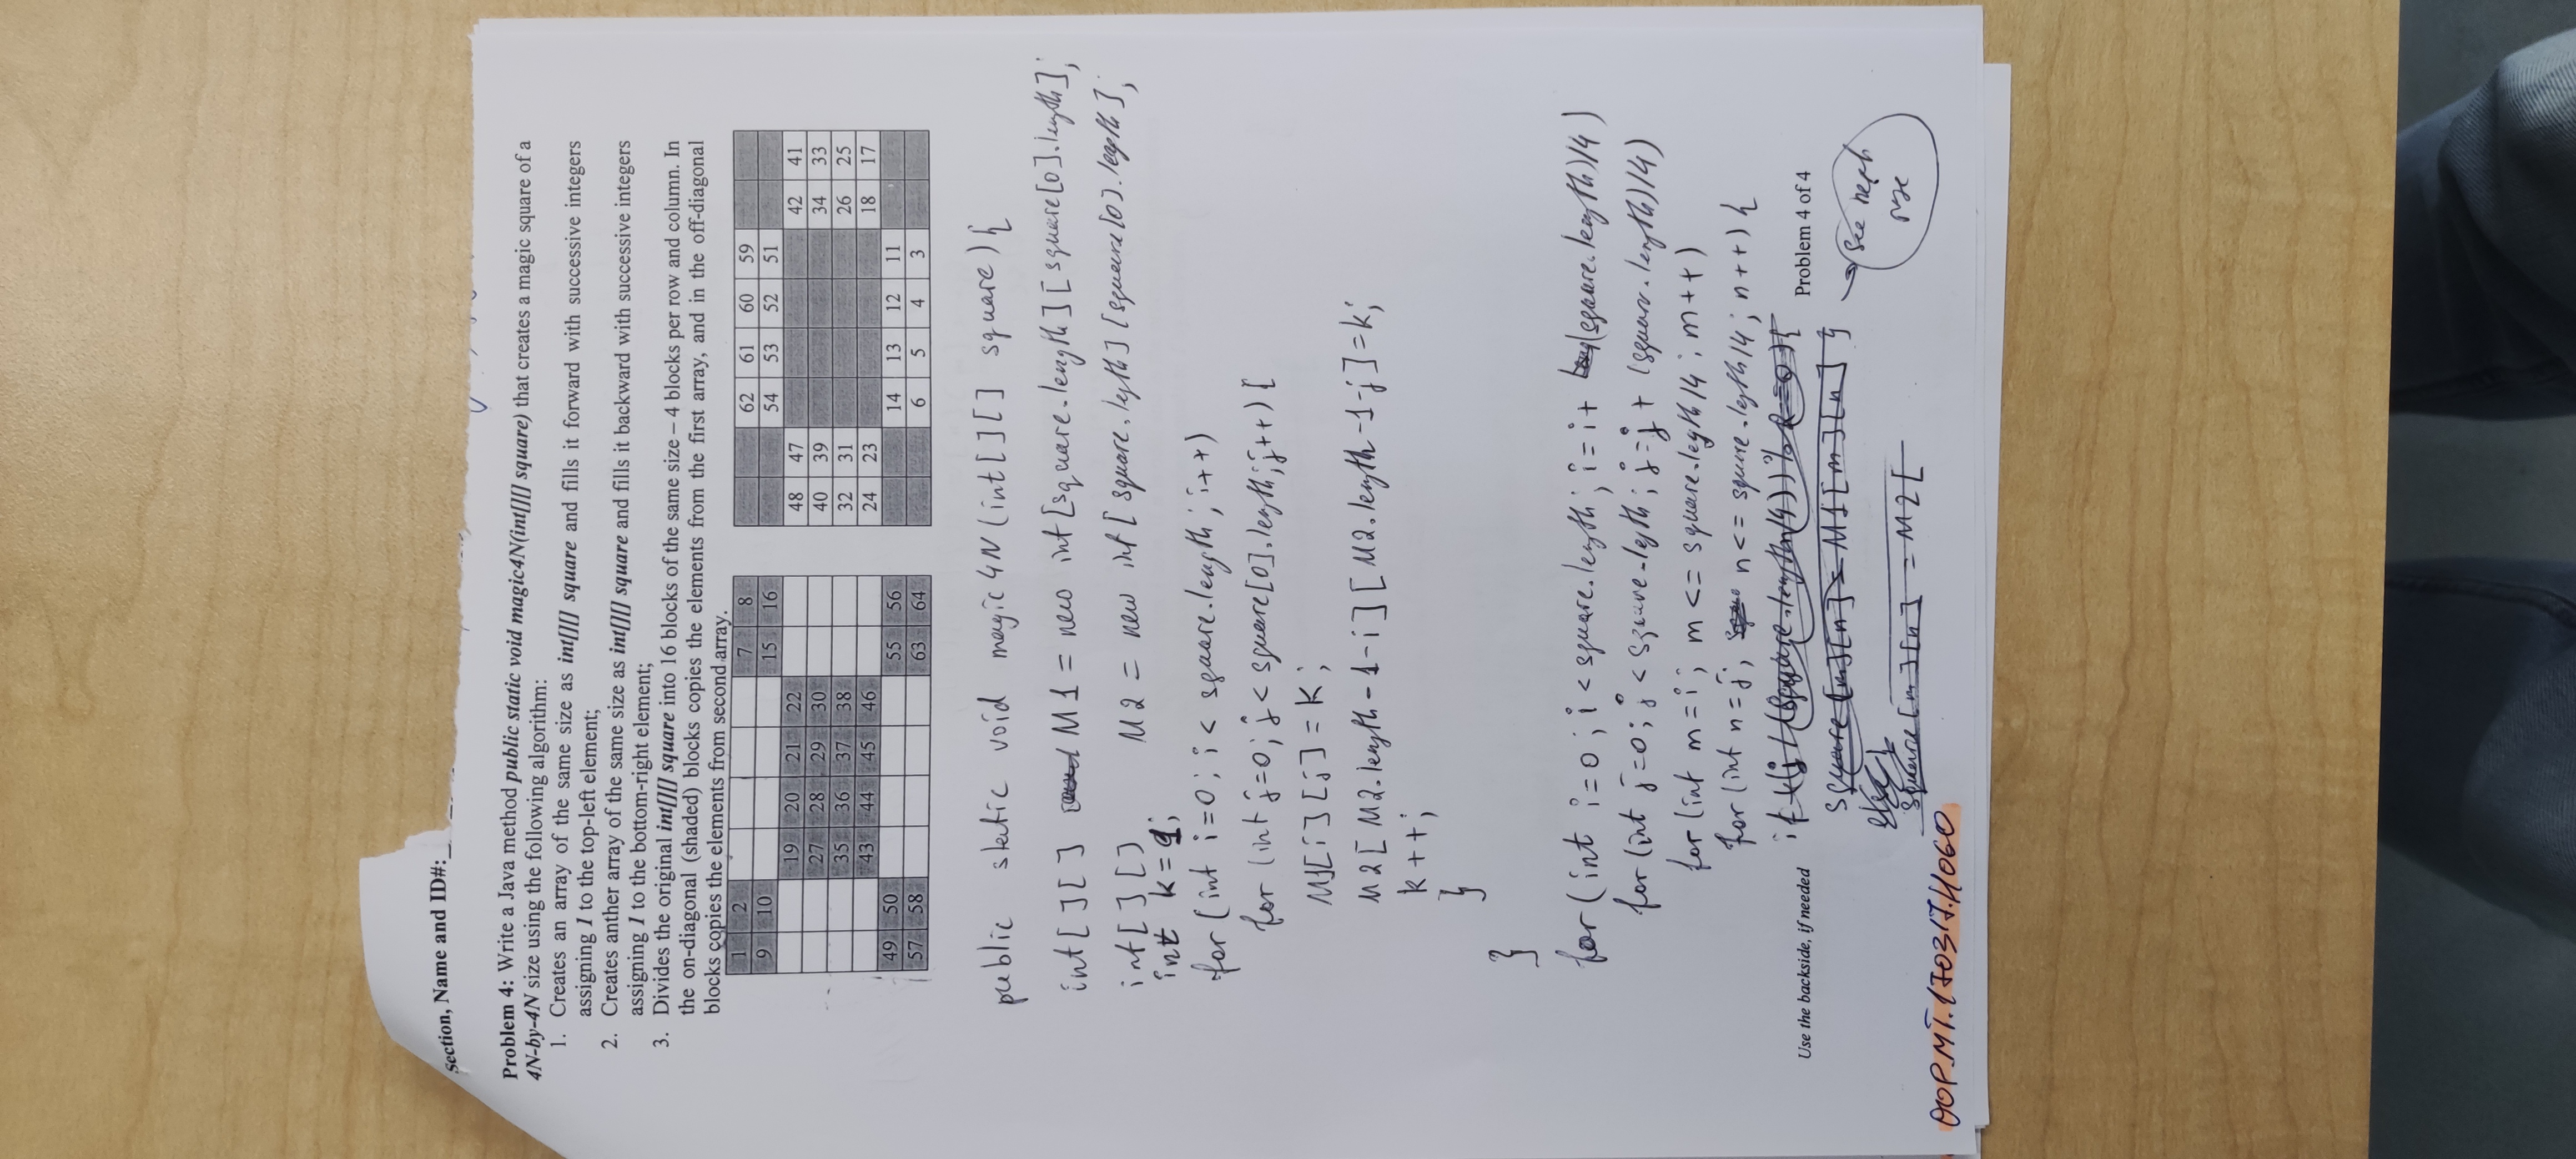 Section, Name and ID#:
Problem 4: Write a Java method public static void magic4N(int[][] square) that creates a magic square of a
4N-by-4N size using the following algorithm:
1. Creates an array of the same size as int[][] square and fills it forward with successive integers
assigning 1 to the top-left element;
2. Creates anther array of the same size as int[][] square and fills it backward with successive integers
assigning 1 to the bottom-right element;
3. Divides the original int[][] square into 16 blocks of the same size – 4 blocks per row and column. In
the on-diagonal (shaded) blocks copies the elements from the first array, and in the off-diagonal
blocks copies the elements from second array.
1 2 7 8
9 10 15 16
19 20 21 22
27 28 29 30
35 36 37 38
43 44 45 46
49 50 55 56
57 58 63 64
62 61 60 59
54 53 52 51
48 47 42 41
40 39 34 33
32 31 26 25
24 23 18 17
14 13 12 11
6 5 4 3
public static void magic4N(int[][] square){
int[][] M1 = new int[square.length][square[0].length];
int[][] M2 = new int[square.length][square[0].length];
int k=1;
for(int i=0; i<square.length; i++)
for(int j=0; j<square[0].length; j++){
M1[i][j]=k;
M2[M2.length-1-i][M2.length-1-j]=k;
k++;
}
}
for(int i=0; i<square.length; i=i+(square.length)/4)
for(int j=0; j<square.length; j=j+(square.length)/4)
for(int m=i; m<=square.length/4; m++)
for(int n=j; n<=square.length/4; n++){
if((j/(square.length/4))%2==0){
square[m][n]=M1[m][n]
else
square[m][n]=M2[
Use the backside, if needed
Problem 4 of 4
See next
OOP.MT.170317.H060